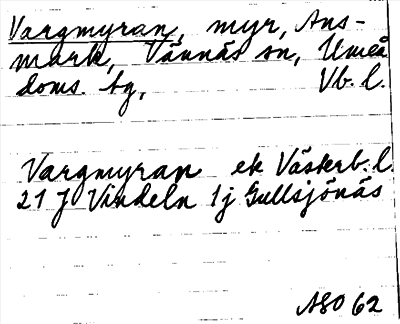 Vargmyran, myr, Ans-
mark, Vännäs sn, Umeå
doms. tg, Vb. l.
Vargmyran ek Västerb. l.
21 J Vindeln 1j Gullsjönäs
ASO 62